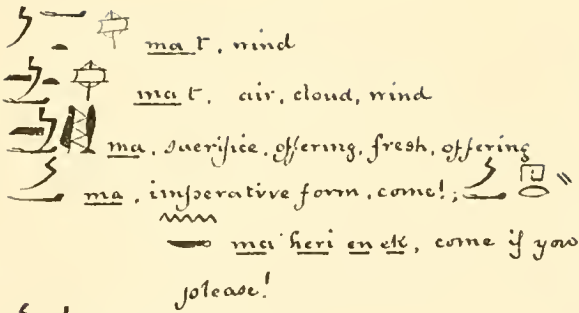 ma t, wind
ma t, air, cloud, wind
ma, sacrifice, offering, fresh, offering
ma, imperative form, come!;
ma heri en ek, come if you
please!